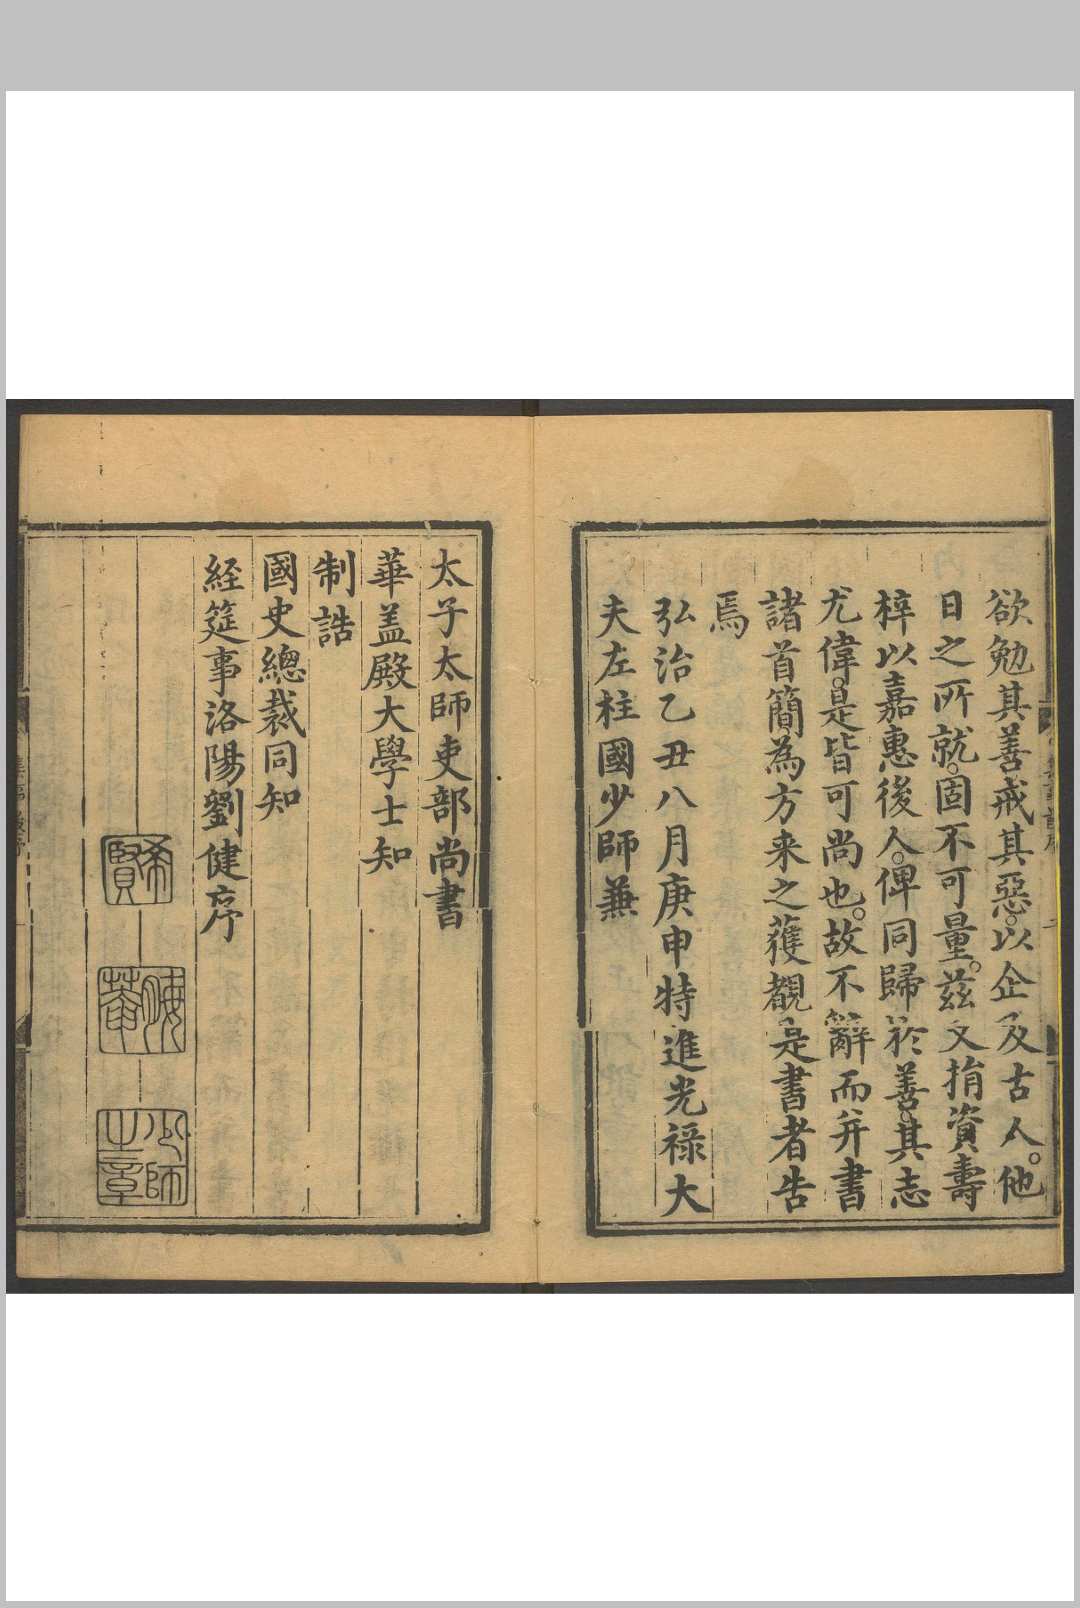 欲勉其善戒其惡。以企及古人。他
日之所就。固不可量。茲文捐資壽
梓以嘉惠後人。俾同歸於善。其志
尤偉。是皆可尚也。故不辭而并書
諸首簡為方来之獲覩是書者告
焉
弘治乙丑八月庚申特進光祿大
夫左柱國少師兼
太子太師吏部尚書
華盖殿大學士知
制誥
國史總裁同知
経筵事洛陽劉健序
希賢
晦菴
少師之章